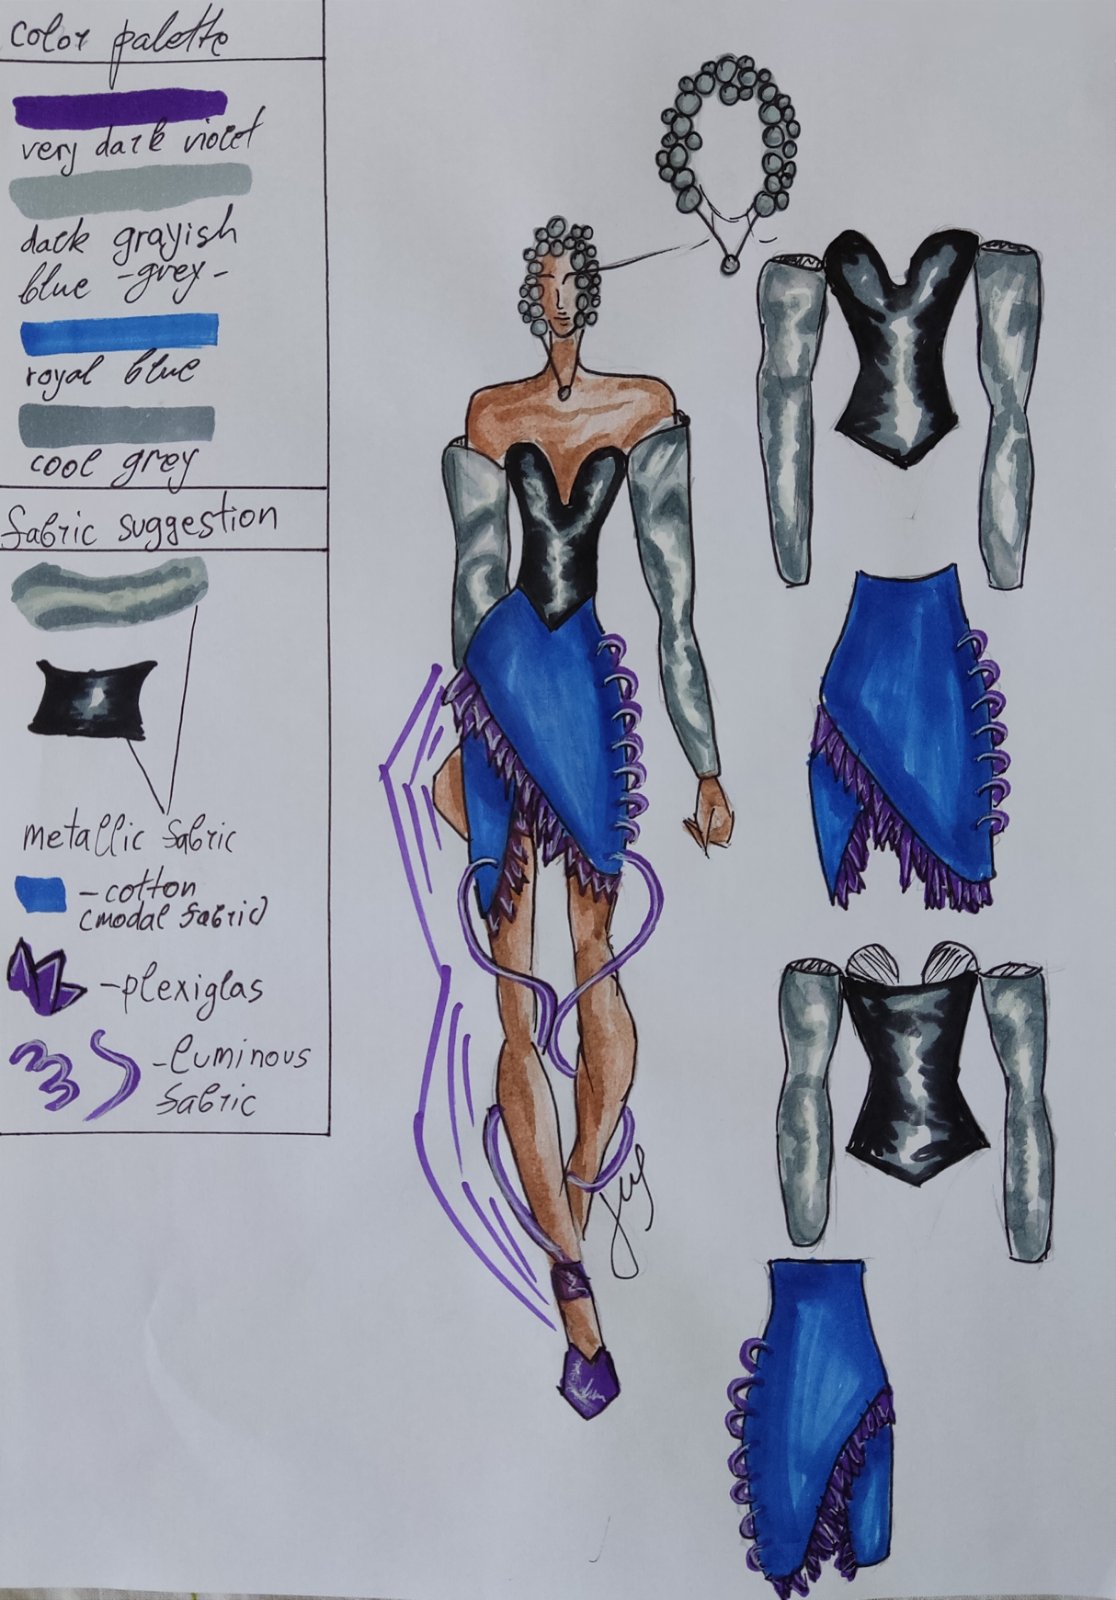 color palette
very dark violet
dark grayish
blue -grey-
royal blue
cool grey
fabric suggestion
metallic fabric
-cotton
(modal fabric)
-plexiglas
-luminous
fabric